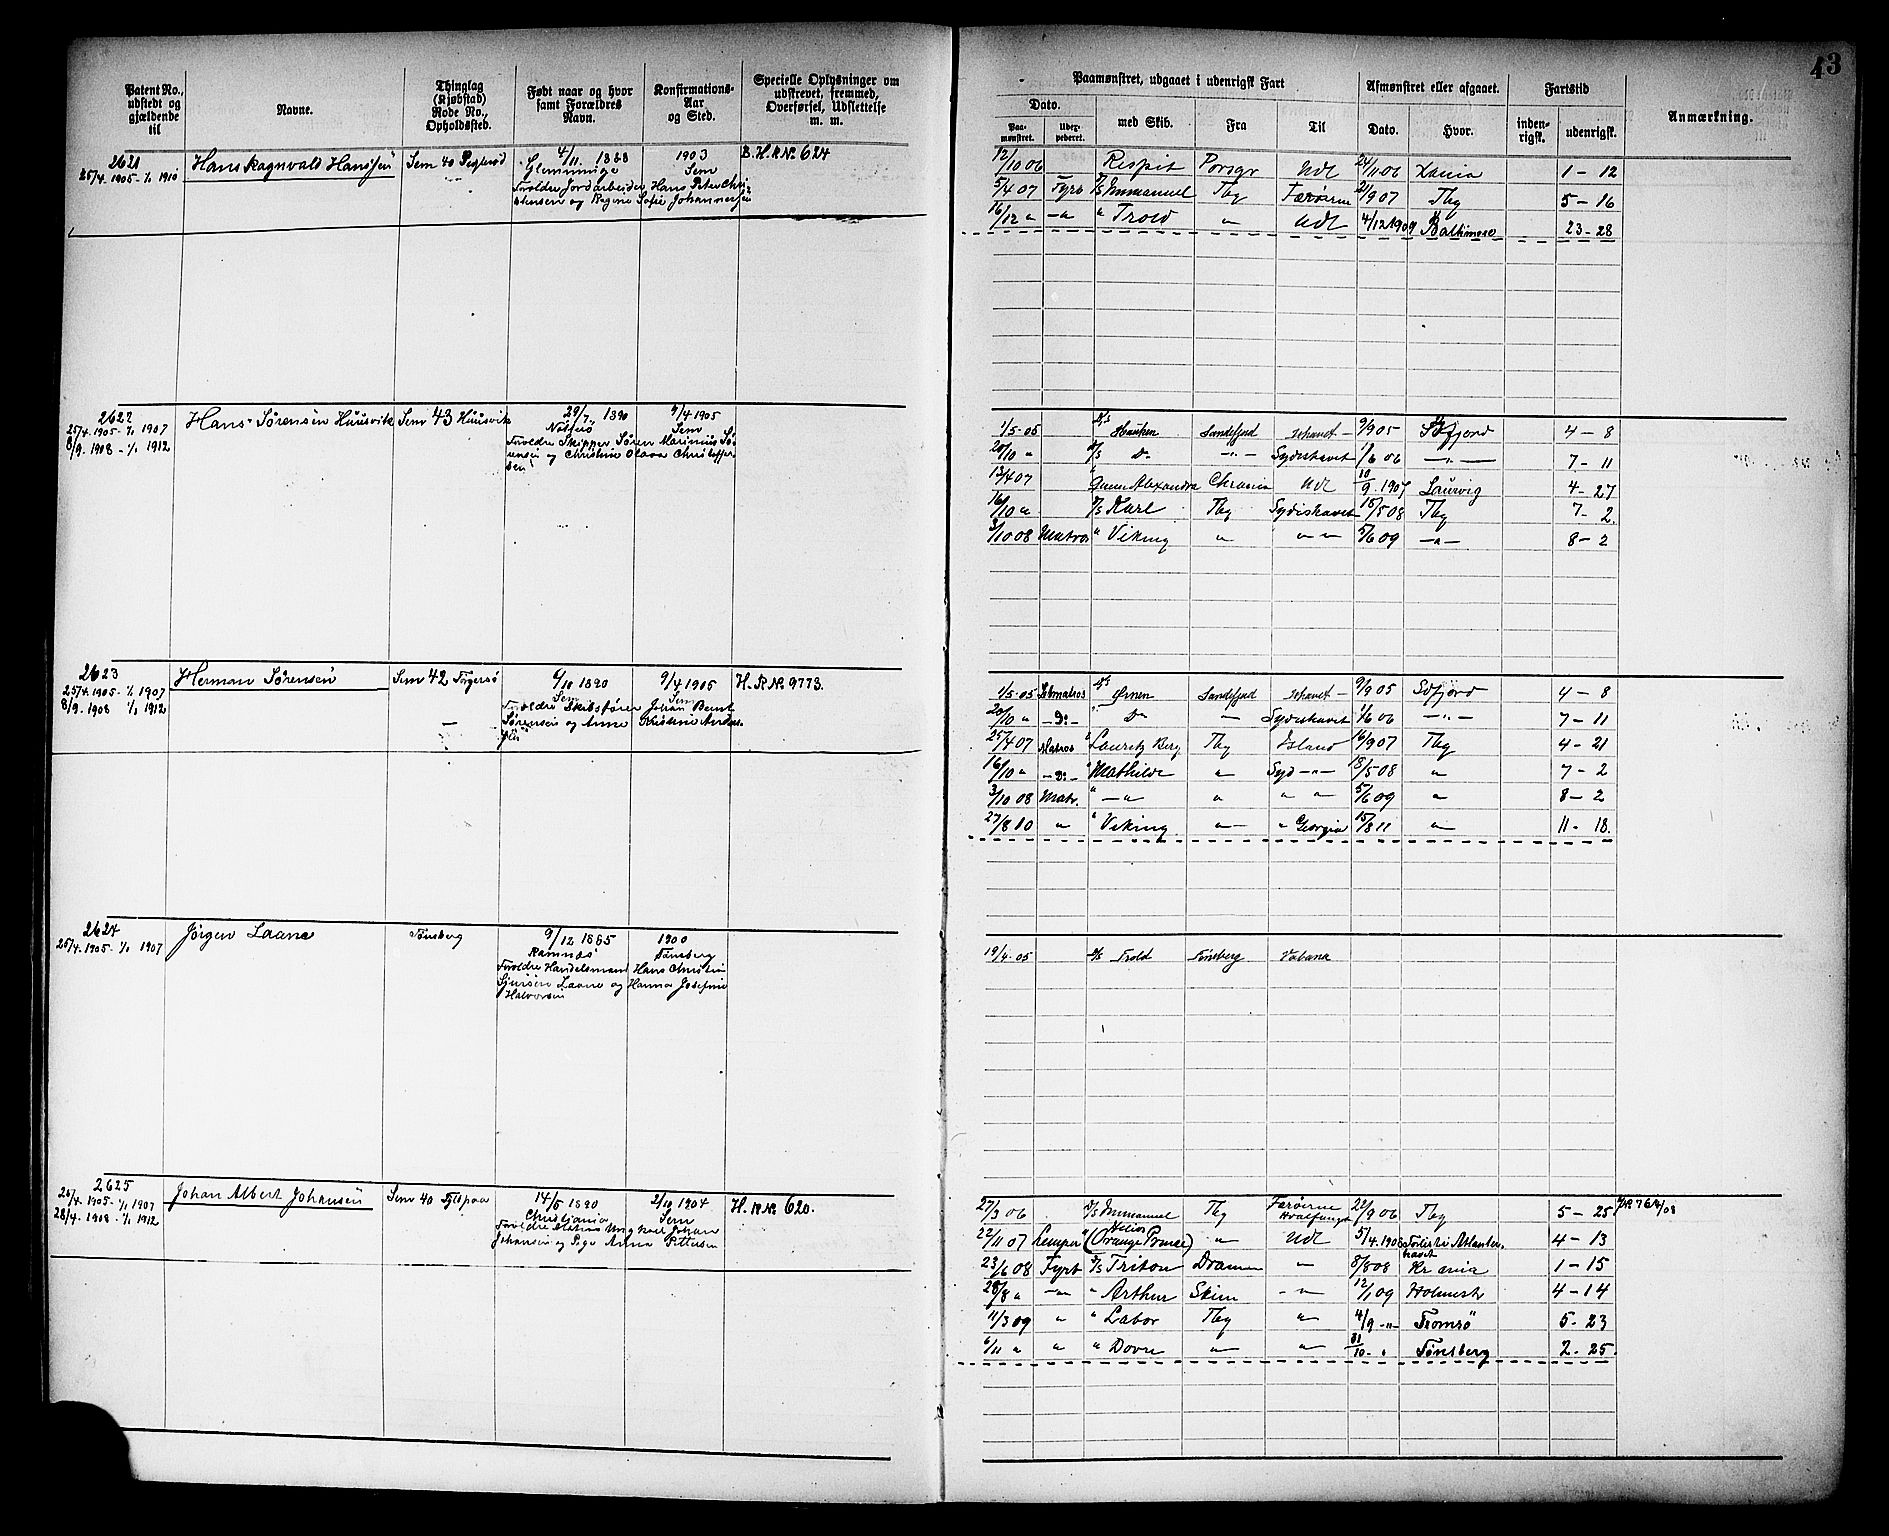 43
Patent No., udstedt og gjældende til
Navne.
Thinglag (Kjøbstad) Rode No., Opholdssted.
Født naar og hvor samt Forældres Navn.
Konfirmations-Aar og Sted.
Specielle Oplysninger om udskrevet, fremmed, Overførsel, Udslettelse m. m.
Paamønstret, udgaaet i udenrigsk Fart
Dato.
Paa-mønstret.
Uder-pederet.
med Skib.
Fra
Til
Afmønstret eller afgaaet.
Dato.
Hvor.
Fartstid
inden-rigsk.
udenrigsk.
Anmærkning.
2621
25/4. 1905 - 1/1 1910
Hans Ragnvald Hanssen
Sem 40
4/11. 1888
Glemminge
Forældre Jordarbeider Hans Peter Chri-
stensen og Ragne Sofie Johannersen
1903
Sem
B. H. R No. 624
12/10 06 Respit Porsgr Udl 24/11 06 Xania 1 - 12
5/4 07 Fyrb D/S Immanuel Tbg Færøerne 21/9 07 Tbg 5 - 16
16/12 " -"- " Trold " Udl 4/12 1909 Baltimore 23 - 28
2622
25/4. 1905 - 1/1 1907
8/9. 1908 - 1/1 1912
Hans Sørensen Huusvik
Sem 43 Huusvik
29/7. 1890
Nøtterø
Forældre Skipper Søren Marinius Sø-
rensen og Christine Olava Christoffer-
sen
9/4 1905
Sem
1/5 05 Hauken Sandefjord Ishavet 9/9 05 Sdfjord 4 - 8
20/10 " D/S Do -"- Sydishavet 1/6 06 -"- 7 - 11
13/4 07 Queen Alexandra Chrania Udl 10/9 1907 Laurvig 4 - 27
16/10 " D/S Karl Tbg Sydishavet 15/5 08 Tbg 7 - 2
3/10 08 Matros " Viking " " " 5/6 09 -"- 8 - 2
2623
25/4. 1905 - 1/1 1907
8/9. 1908 1/1 1912
Herman Sørensen
Sem 42
6/10 1890
Sem
Forældre Skibsfører Johan Bernt
Sørensen og Anne Kristine Anders-
9/4 1905
Sem
H. R No. 9773.
1/5 05 Letmatros Ørnen Sandefjord Ishavet 9/9 05 Sdfjord 4 - 8
20/10 " - Do - " Do - Sydishavet 1/6 06 -"- 7 - 11
25/4 07 Matros " Lauritz Berg Tbg Island 16/9 07 Tbg 4 - 21
16/10 " - Do - " Mathilde " Syd -"- 18/5 08 " 7 - 2
3/10 08 Matr. " -"- " " " 5/6 09 " 8 - 2
27/8 10 " " Viking -"- " Georgia 15/8 11 " 11 - 18.
2624
25/4. 1905 - 1/1 1907
Jørgen Laane
Tønsberg
9/12 1885
Ramnes
Forældre Handelsmand Hans Christian
Sjursen Laane og Hanna Josefine
Halvorsen
1900
Tønsberg
19/4 05 D/S Trold Tønsberg Habana
2625
26/4. 1905 - 1/1 1907
28/4. 1908 - 1/1 1912
Johan Albert Johansen
Sem 40
14/5 1890
Christiania
2/10 1904
Sem
Johansen og Anna Pettersen
H. R No. 620.
27/3 06 D/S Immanuel Tbg Færøerne Hvalfangst 22/9 06 Tbg 5 - 25
22/11 07 Lemper " Helios (Orange Prince) " Udl 5/4 1908 Forlist i Atlanter-havet 4 - 13
23/6 08 Fyrb D/S Triton Dramen " 8/8 08 Kr ania 1 - 15
28/8 " -"- " Arthur Skien -"- 12/1 09 Holmestr 4 - 14
11/3 09 " " Labor Tbg " 4/9 -"- Tromsø 5 - 23
6/11 " " " Dovre " " 31/10 - " Tønsberg 2 - 25.